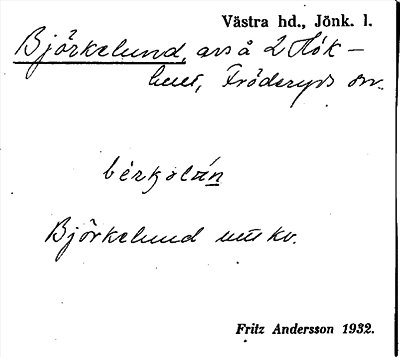 Västra hd., Jönk. l.
Björkelund, avs å 2 Hök-
hult, Fröderyds sn.
bérkəlán
Björkelund uu kv.
Fritz Andersson 1932.